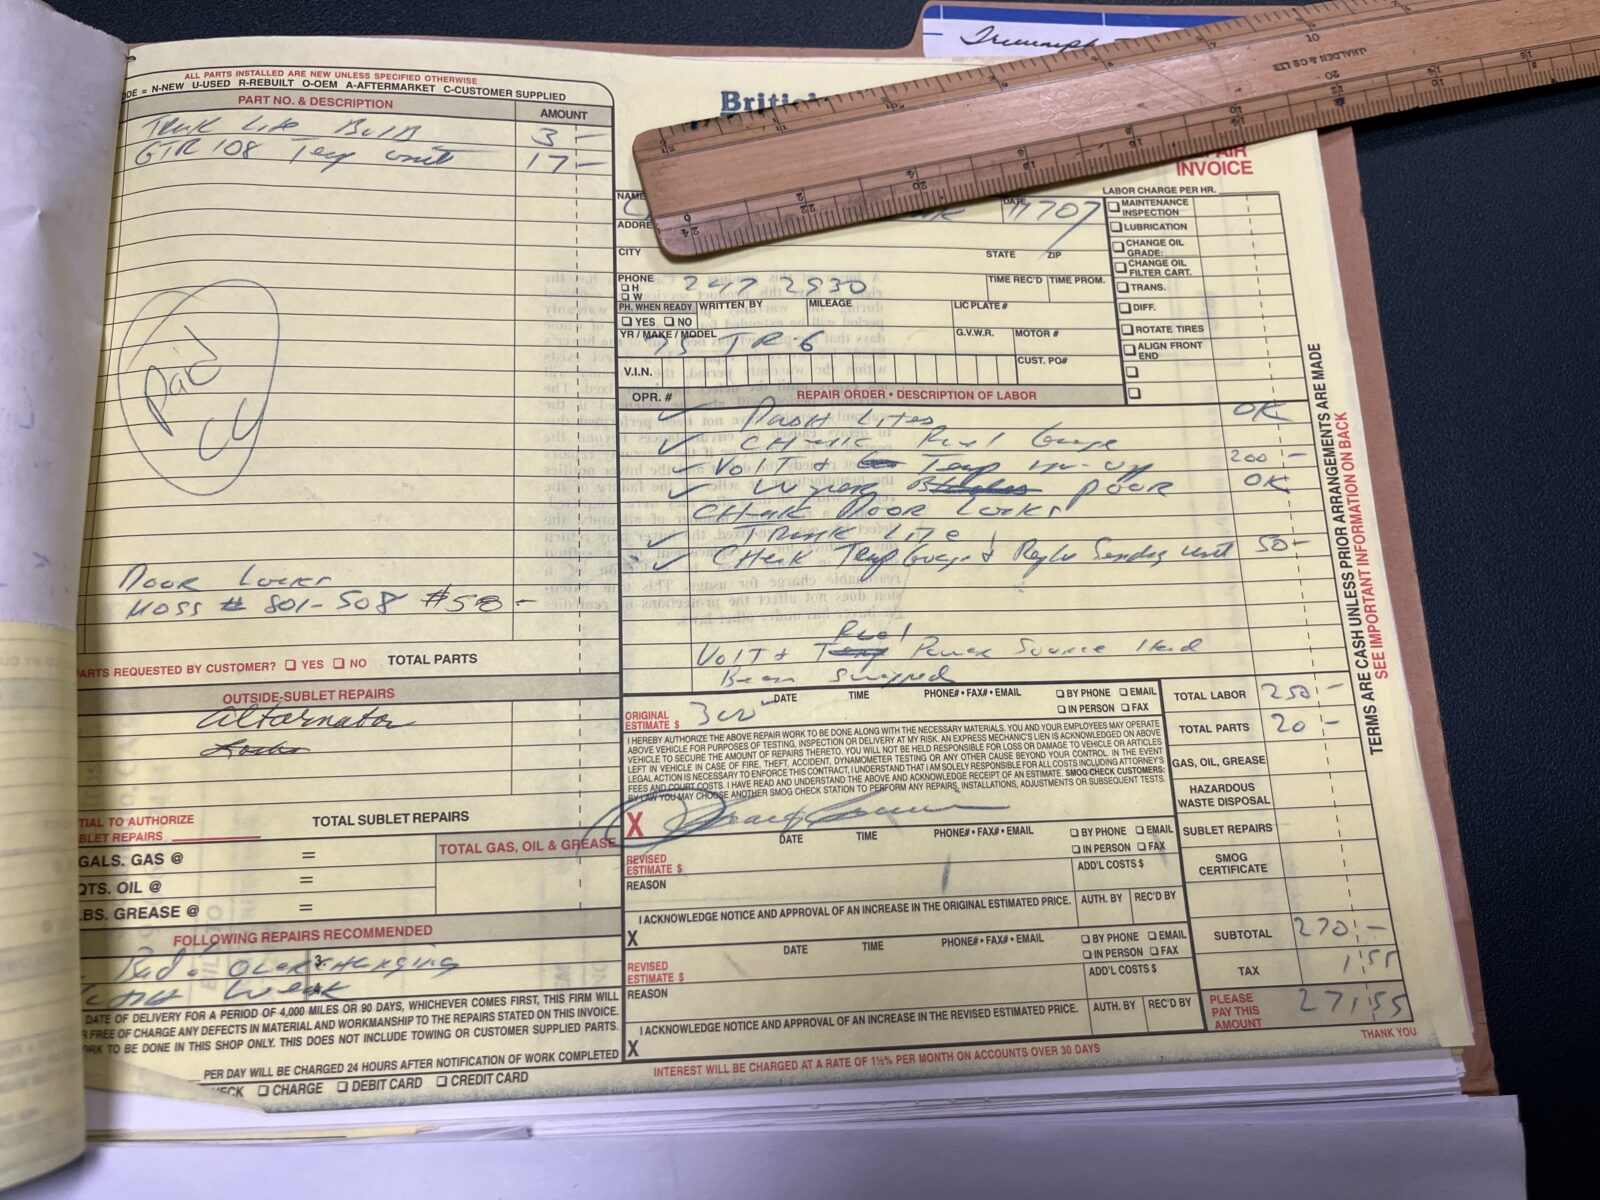 Triumph
10
20
J. HALDEN & CO LTD
ALL PARTS INSTALLED ARE NEW UNLESS SPECIFIED OTHERWISE
DE = N-NEW U-USED R-REBUILT O-OEM A-AFTERMARKET C-CUSTOMER SUPPLIED
PART NO. & DESCRIPTION AMOUNT
Trunk Lite Bulb 3 -
GTR 108 Temp unit 17 -
Paid
CC
Door Locks
MOSS # 801-508 $50 -
PARTS REQUESTED BY CUSTOMER? YES NO TOTAL PARTS
OUTSIDE-SUBLET REPAIRS
Alternator
TIAL TO AUTHORIZE
BLET REPAIRS
TOTAL SUBLET REPAIRS
GALS. GAS @ =
TOTAL GAS, OIL & GREASE
QTS. OIL @ =
LBS. GREASE @ =
FOLLOWING REPAIRS RECOMMENDED
Bad . Over charging
3.
4.
Weak
DATE OF DELIVERY FOR A PERIOD OF 4,000 MILES OR 90 DAYS, WHICHEVER COMES FIRST, THIS FIRM WILL
FREE OF CHARGE ANY DEFECTS IN MATERIAL AND WORKMANSHIP TO THE REPAIRS STATED ON THIS INVOICE.
RK TO BE DONE IN THIS SHOP ONLY. THIS DOES NOT INCLUDE TOWING OR CUSTOMER SUPPLIED PARTS.
PER DAY WILL BE CHARGED 24 HOURS AFTER NOTIFICATION OF WORK COMPLETED
ECK CHARGE DEBIT CARD CREDIT CARD
Briti
AIR
INVOICE
NAME
DATE
7707
ADDRE
CITY STATE ZIP
PHONE
H
W
247 2930
TIME REC'D TIME PROM.
PH. WHEN READY WRITTEN BY MILEAGE LIC PLATE #
YES NO
YR / MAKE / MODEL
75 TR-6
G.V.W.R. MOTOR #
V.I.N. CUST. PO#
LABOR CHARGE PER HR.
MAINTENANCE
INSPECTION
LUBRICATION
CHANGE OIL
GRADE:
CHANGE OIL
FILTER CART.
TRANS.
DIFF.
ROTATE TIRES
ALIGN FRONT
END
OPR. # REPAIR ORDER • DESCRIPTION OF LABOR
Dash Lites OK
Check Fuel Gauge
Volt & Temp 200 -
Wiper poor OK
Check Door Locks
Trunk Lite
Check Temp Gauge & Replce Sending unit 50 -
Fuel
Volt & Temp Power Source Had
Been Swapped
DATE TIME PHONE# • FAX# • EMAIL BY PHONE EMAIL
IN PERSON FAX
ORIGINAL
ESTIMATE $ 300
I HEREBY AUTHORIZE THE ABOVE REPAIR WORK TO BE DONE ALONG WITH THE NECESSARY MATERIALS. YOU AND YOUR EMPLOYEES MAY OPERATE
ABOVE VEHICLE FOR PURPOSES OF TESTING, INSPECTION OR DELIVERY AT MY RISK. AN EXPRESS MECHANIC'S LIEN IS ACKNOWLEDGED ON ABOVE
VEHICLE TO SECURE THE AMOUNT OF REPAIRS THERETO. YOU WILL NOT BE HELD RESPONSIBLE FOR LOSS OR DAMAGE TO VEHICLE OR ARTICLES
LEFT IN VEHICLE IN CASE OF FIRE, THEFT, ACCIDENT, DYNAMOMETER TESTING OR ANY OTHER CAUSE BEYOND YOUR CONTROL. IN THE EVENT
LEGAL ACTION IS NECESSARY TO ENFORCE THIS CONTRACT, I UNDERSTAND THAT I AM SOLELY RESPONSIBLE FOR ALL COSTS INCLUDING ATTORNEY'S
FEES AND COURT COSTS. I HAVE READ AND UNDERSTAND THE ABOVE AND ACKNOWLEDGE RECEIPT OF AN ESTIMATE. SMOG CHECK CUSTOMERS:
BY LAW YOU MAY CHOOSE ANOTHER SMOG CHECK STATION TO PERFORM ANY REPAIRS, INSTALLATIONS, ADJUSTMENTS OR SUBSEQUENT TESTS.
X
DATE TIME PHONE# • FAX# • EMAIL BY PHONE EMAIL
IN PERSON FAX
REVISED
ESTIMATE $
ADD'L COSTS $
REASON
AUTH. BY REC'D BY
I ACKNOWLEDGE NOTICE AND APPROVAL OF AN INCREASE IN THE ORIGINAL ESTIMATED PRICE.
X
DATE TIME PHONE# • FAX# • EMAIL BY PHONE EMAIL
IN PERSON FAX
REVISED
ESTIMATE $
ADD'L COSTS $
REASON
AUTH. BY REC'D BY
I ACKNOWLEDGE NOTICE AND APPROVAL OF AN INCREASE IN THE REVISED ESTIMATED PRICE.
X
INTEREST WILL BE CHARGED AT A RATE OF 1½% PER MONTH ON ACCOUNTS OVER 30 DAYS
TOTAL LABOR 250 -
TOTAL PARTS 20 -
GAS, OIL, GREASE
HAZARDOUS
WASTE DISPOSAL
SUBLET REPAIRS
SMOG
CERTIFICATE
SUBTOTAL 270 -
TAX 1 55
PLEASE
PAY THIS
AMOUNT
271 55
THANK YOU
TERMS ARE CASH UNLESS PRIOR ARRANGEMENTS ARE MADE
SEE IMPORTANT INFORMATION ON BACK